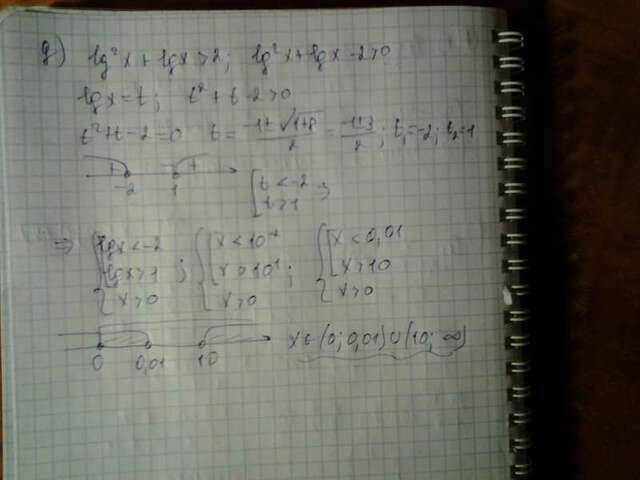 д) lg²x + lgx > 2; lg²x + lgx - 2 > 0
lgx = t; t² + t - 2 > 0
t² + t - 2 = 0 t = (-1 ± √(1+8))/2 = (-1±3)/2; t₁ = -2; t₂ = 1
+ - +
-2 1
[t < -2
t > 1;
⇒ {[lgx < -2 {[x < 10⁻² {[x < 0,01
lgx > 1 ; x > 10¹ ; x > 10
x > 0 x > 0 x > 0
0 0,01 10 x ∈ (0; 0,01) ∪ (10; ∞)